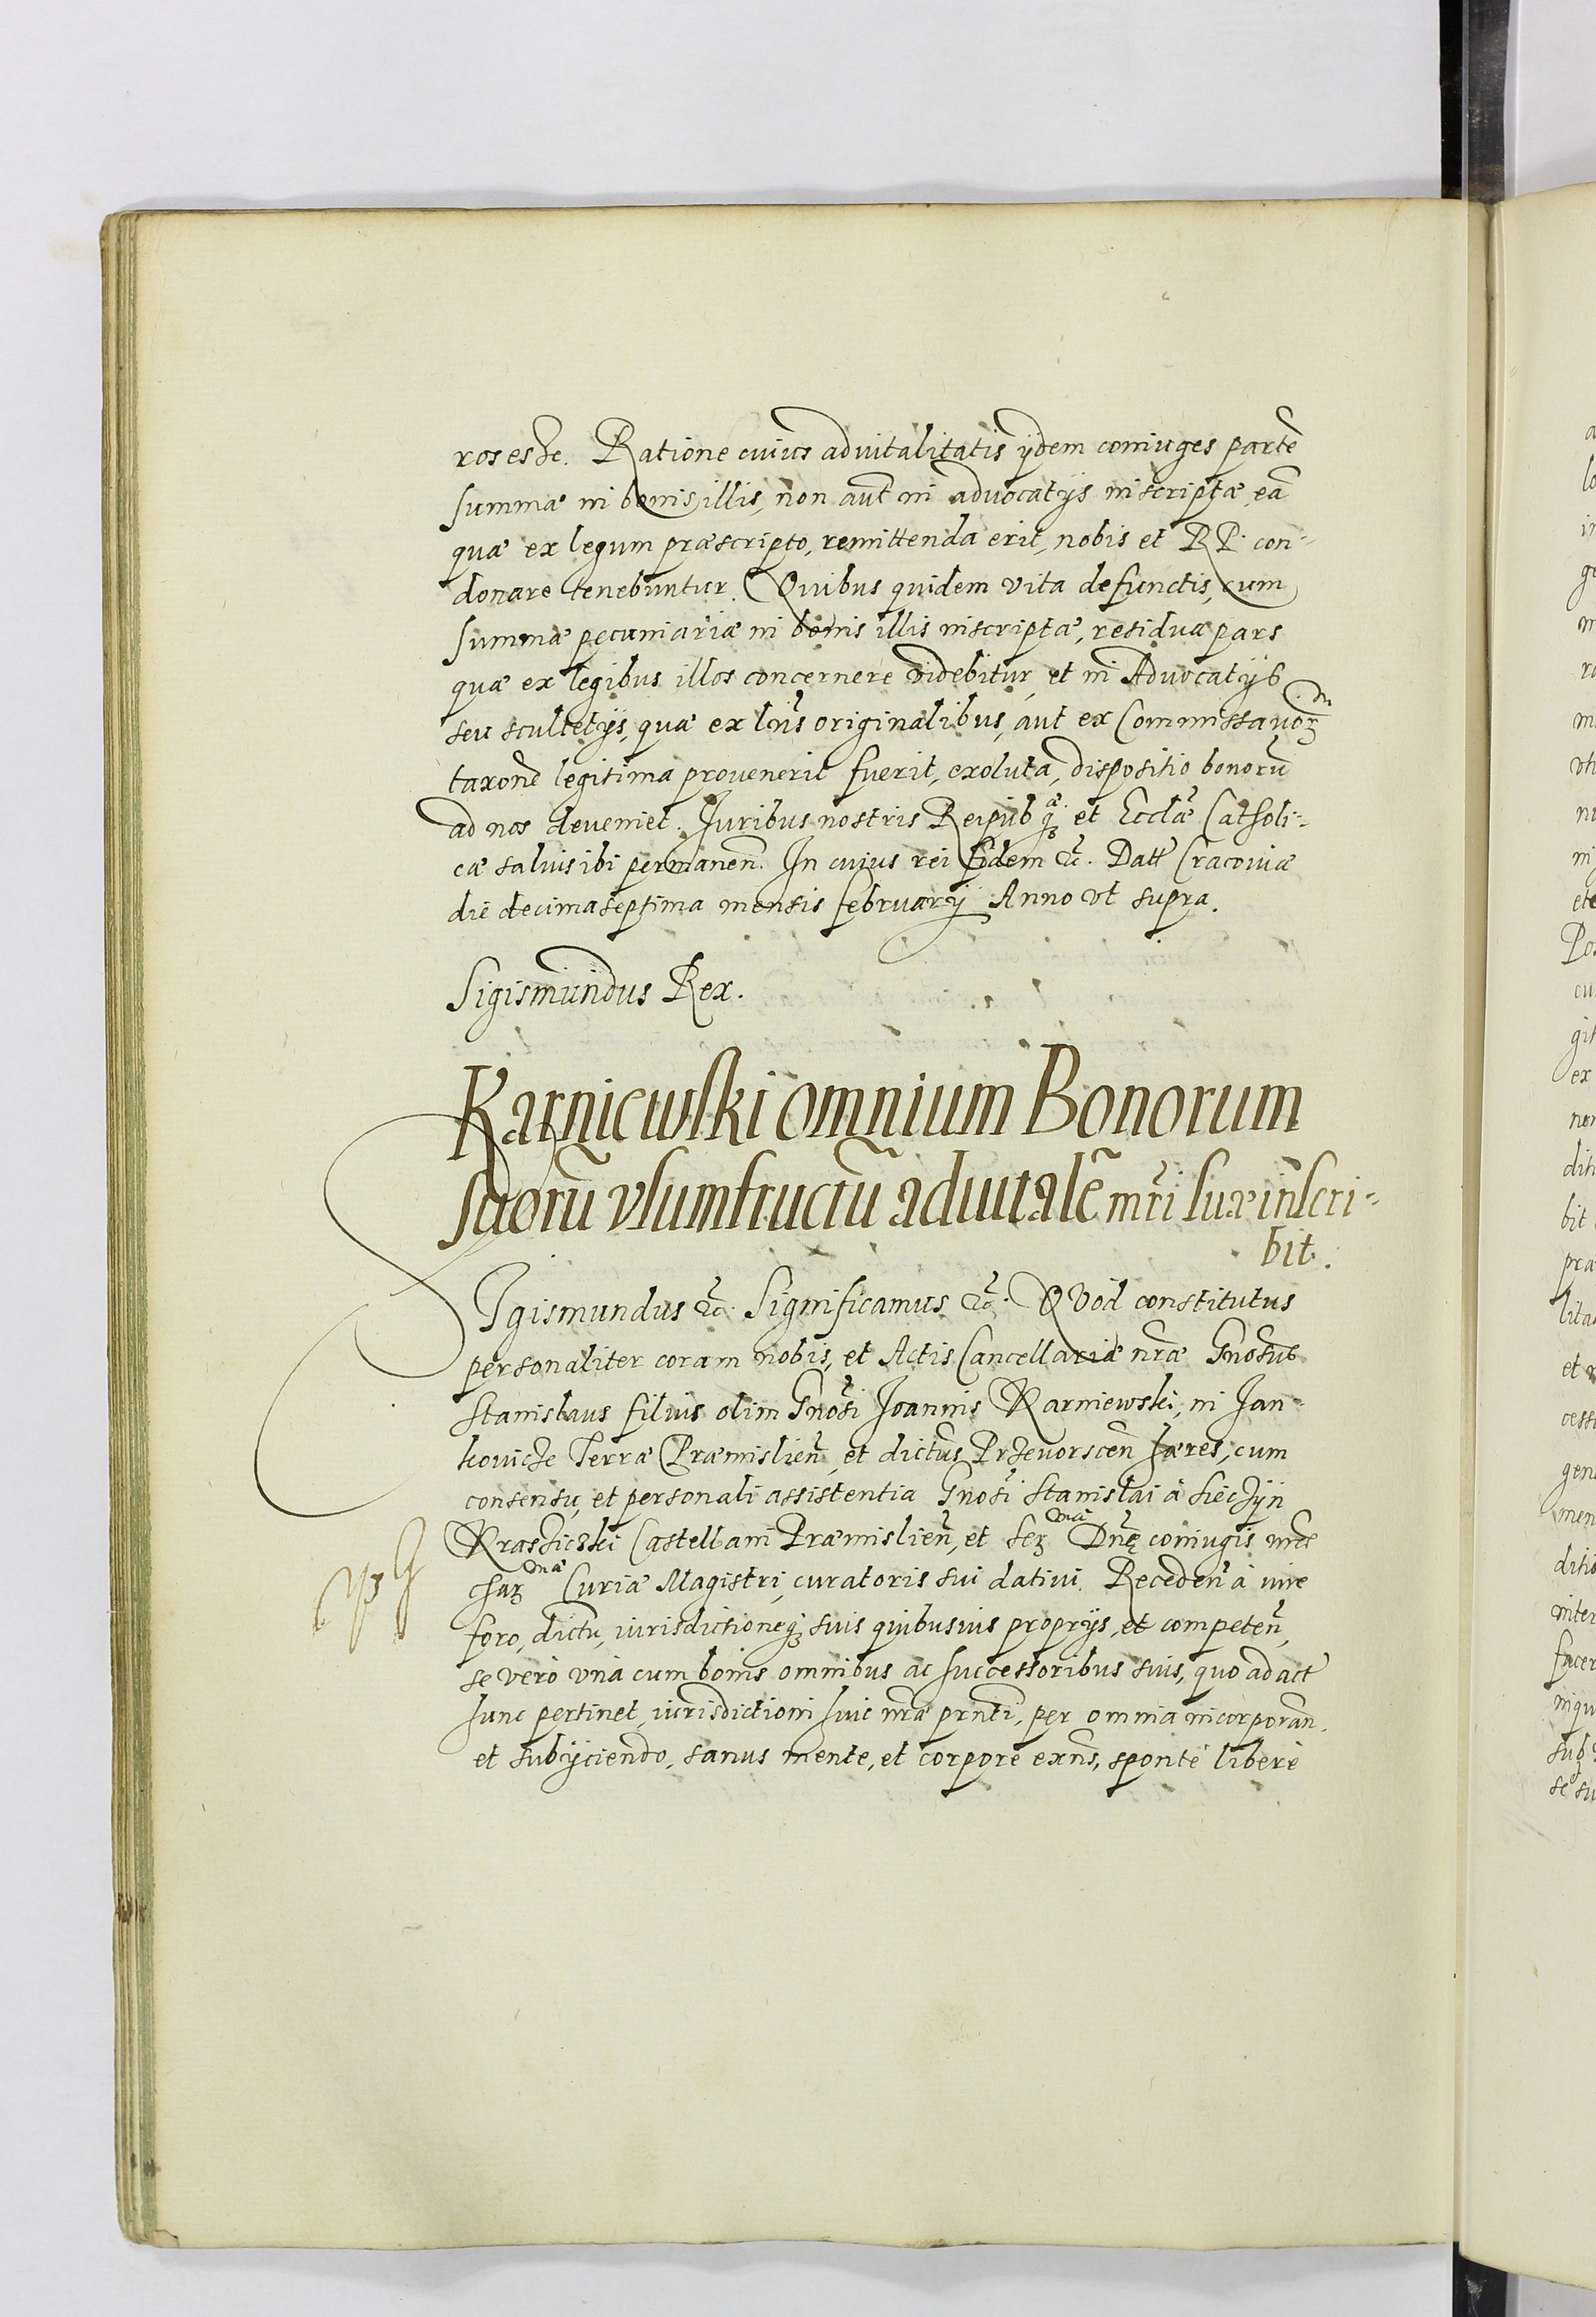 ros esse. Ratione cuius advitalitatis ijdem coniuges partē
summæ in bonis illis, non aut̃ in advocatijs inscriptæ, eā
quæ ex legum præscripto, remittenda erit, nobis et R P. con-
donare tenebuntur. Quibus quidem vita defunctis, cum
summæ pecuniariæ in bonis illis inscriptæ, residua pars
quæ ex legibus illos concernere videbitur, et in Advocatijs
seu scultetijs, quæ ex lr̃is originalibus, aut ex Commissarioꝝ
taxone legitima provenerit fuerit, exoluta, dispositio bonorũ
ad nos deveniet. Iuribus nostris Reipub. q̃ et Eccl̃æ Catholi-
cæ salvis ibi permanen̄. In cuius rei fidem &c. Datt Cracoviæ
die decimaseptima mensis februarij Anno vt supra.
Sigismundus Rex.
Karniewski omnium Bonorum
suorũ vsumfructũ advitalẽ mr̃i suæ inscri-
bit.
SIgismundus &c. Significamus &c. QVod constitutus
personaliter coram nobis, et Actis Cancellariæ nr̃æ Gnosus
Stanislaus filius olim Gnosi Joannis Karniewski, in Jan-
kovicze Terræ Præmislien̄, et dictus Przevorscen̄ hæres, cum
consensu, et personali assistentia Gnosi Stanislai à Siecżyn
Krasiczki Castellani Præmislien̄, et Seꝝ Dn̄æ coniugis nr̃æ
chaꝝ Curiæ Magistri, curatoris sui dativi. Receden̄ à iure
foro, dictu, iurisdictioneq; suis quibusvis proprijs, et competen̄,
se vero vnà cum bonis omnibus ac successoribus suis, quo ad act̃
hunc pertinet, iurisdictioni huic nr̃æ prn̄ti, per omnia incorporan̄.
et subijciendo, sanus mente, et corpore exns, sponte libere